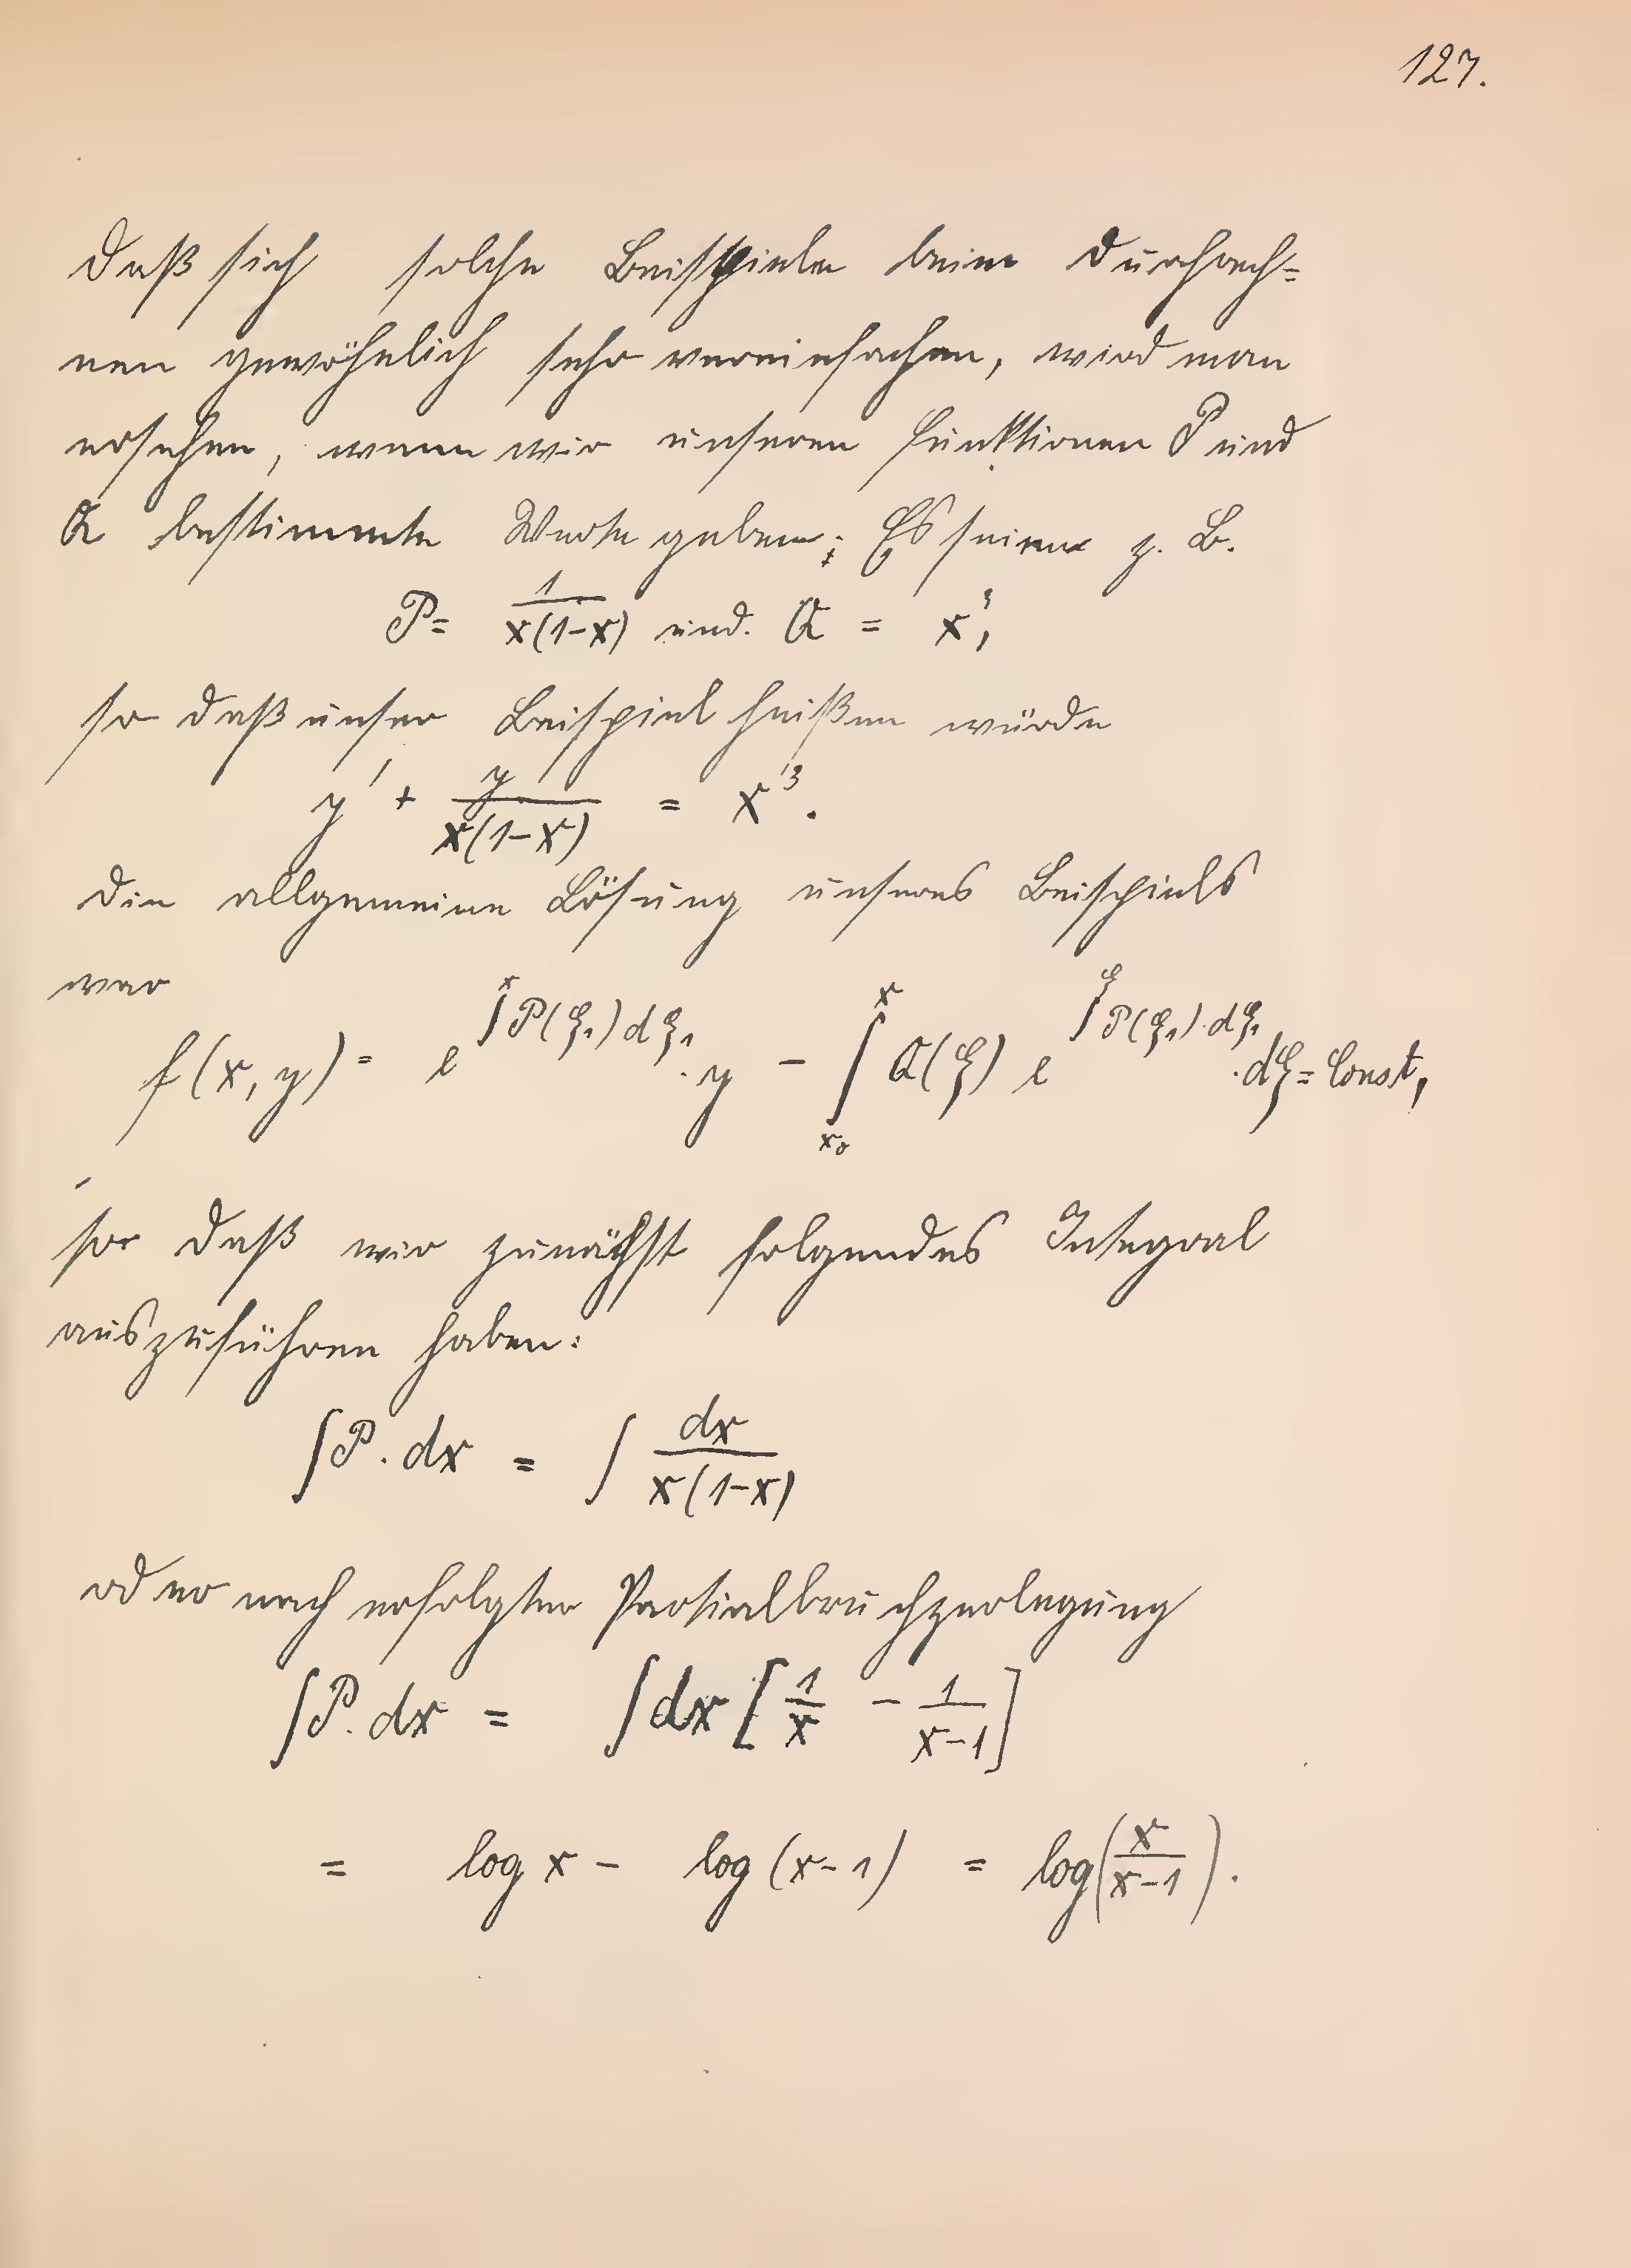 127.
Daß sich solche Beispiele beim Durchrech=
nen gewöhnlich sehr vereinfachen, wird man
ersehen, wenn wir unseren Funktionen P und
Q bestimmte Werte geben; Es seien z. B.
P = 1/(x(1-x)) und. Q = x³,
so daß unser Beispiel heißen würde
y' + y/(x(1-x)) = x³.
Die allgemeine Lösung unseres Beispiels
war
f(x,y) = e^{∫^x P(ξ₁) dξ₁} · y - ∫_{x₀}^{x} Q(ξ) e^{∫^ξ P(ξ₁)·dξ₁} · dξ = Const,
so daß wir zunächst folgendes Integral
auszuführen haben:
∫P. dx = ∫ dx/(x(1-x))
oder nach erfolgter Partialbruchzerlegung
∫P. dx = ∫dx [1/x - 1/(x-1)]
= log x - log (x-1) = log(x/(x-1)).